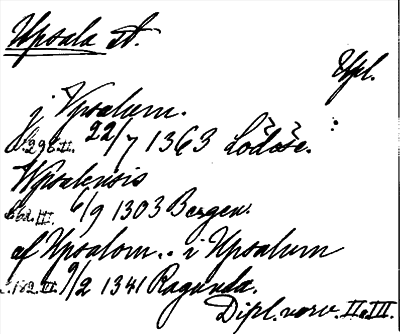 Upsala st.
Upl.
j Vpsalum.
S. 298. II. 22/7 1363 Lödöse.
Wpsalensis
S. 62. III. 6/9 1303 Bergen.
af Upsalom.. i Upsalum
S. 182. III. 9/2 1341 Ragunda.
Dipl. norv. II o. III.